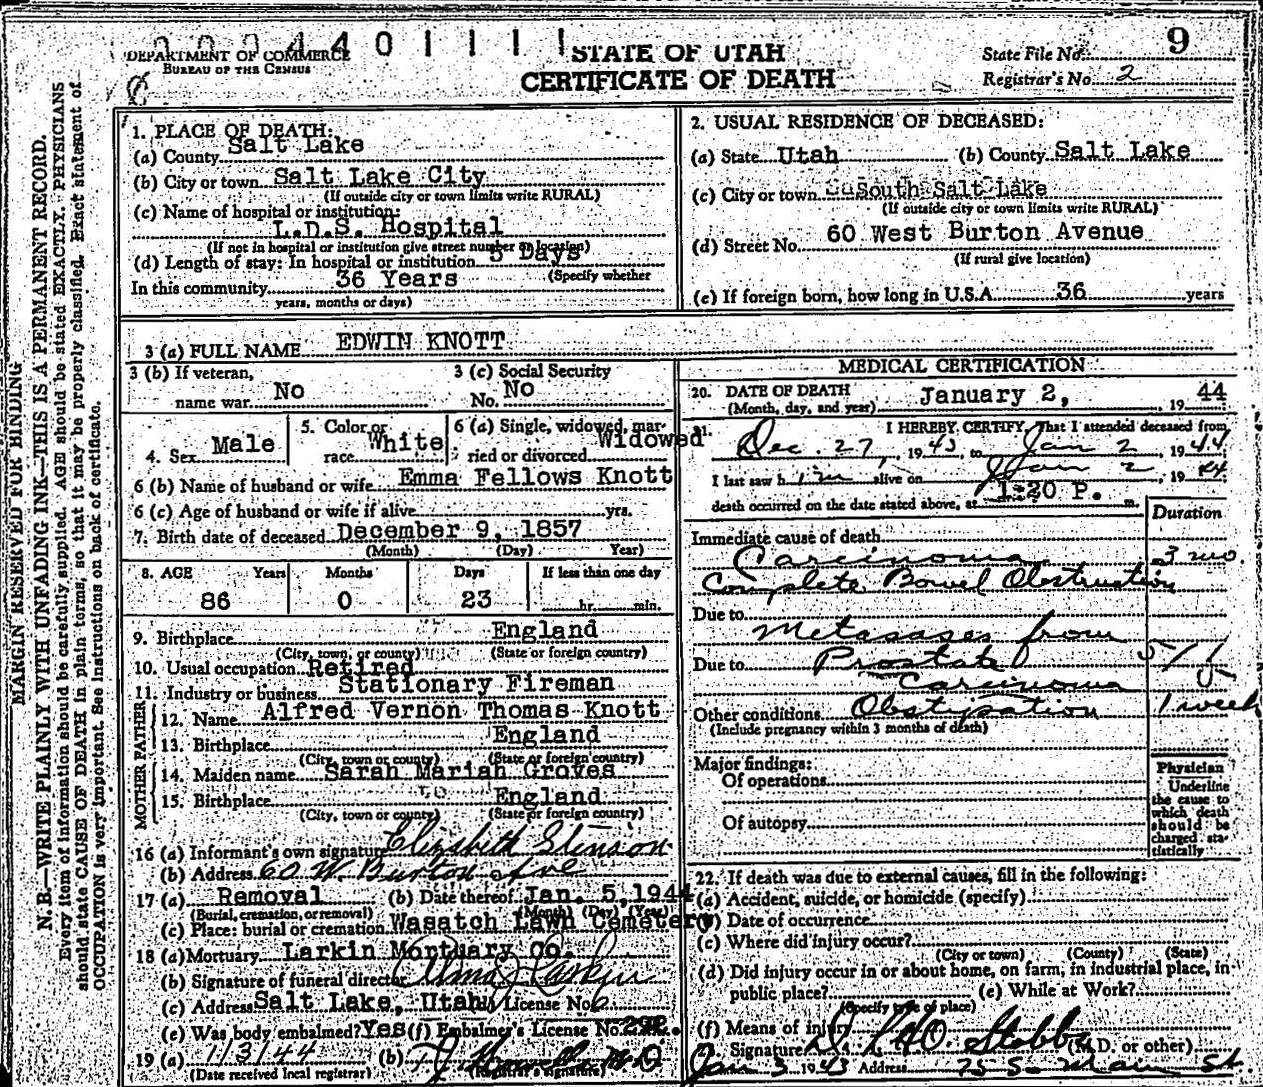 0 0 0 4 4 0 1 1 1 1
DEPARTMENT OF COMMERCE
BUREAU OF THE CENSUS
STATE OF UTAH
CERTIFICATE OF DEATH
State File No. 9
Registrar's No. 2
MARGIN RESERVED FOR BINDING
N. B.—WRITE PLAINLY WITH UNFADING INK—THIS IS A PERMANENT RECORD.
Every item of information should be carefully supplied. AGE should be stated EXACTLY. PHYSICIANS
should state CAUSE OF DEATH in plain terms, so that it may be properly classified. Exact statement of
OCCUPATION is very important. See instructions on back of certificate.
1. PLACE OF DEATH:
(a) County Salt Lake
(b) City or town Salt Lake City
(If outside city or town limits write RURAL)
(c) Name of hospital or institution:
L.D.S. Hospital
(If not in hospital or institution give street number or location)
(d) Length of stay: In hospital or institution 5 Days
(Specify whether
In this community 36 Years
years, months or days)
2. USUAL RESIDENCE OF DECEASED:
(a) State Utah (b) County Salt Lake
(c) City or town South Salt Lake
(If outside city or town limits write RURAL)
(d) Street No. 60 West Burton Avenue
(If rural give location)
(e) If foreign born, how long in U.S.A. 36 years
3 (a) FULL NAME EDWIN KNOTT
3 (b) If veteran, name war No
3 (c) Social Security No. No
4. Sex Male
5. Color or race White
6 (a) Single, widowed, married or divorced Widowed
6 (b) Name of husband or wife Emma Fellows Knott
6 (c) Age of husband or wife if alive yrs.
7. Birth date of deceased December 9, 1857
(Month) (Day) Year)
8. AGE Years Months Days If less than one day
86 0 23 hr. min.
9. Birthplace England
(City, town, or county) (State or foreign country)
10. Usual occupation Retired
11. Industry or business Stationary Fireman
FATHER
12. Name Alfred Vernon Thomas Knott
13. Birthplace England
(City, town or county) (State or foreign country)
MOTHER
14. Maiden name Sarah Mariah Groves
15. Birthplace England
(City, town or county) (State or foreign country)
16 (a) Informant's own signature Elizabeth Stinson
(b) Address 60 W. Burton Ave
17 (a) Removal (b) Date thereof Jan. 5, 1944
(Burial, cremation, or removal) (Month) (Day) (Year)
(c) Place: burial or cremation Wasatch Lawn Cemetery
18 (a) Mortuary Larkin Mortuary Co.
(b) Signature of funeral director Alma J Larkin
(c) Address Salt Lake, Utah License No. 6
(e) Was body embalmed? Yes (f) Embalmer's License No. 292.
19 (a) 1/3/44 (b) M D
(Date received local registrar) (Registrar's signature)
MEDICAL CERTIFICATION
20. DATE OF DEATH
(Month, day, and year) January 2, 19 44
21. I HEREBY CERTIFY, That I attended deceased from
Dec. 27, 19 43, to Jan 2, 19 44
I last saw h im alive on Jan 2, 19 44
death occurred on the date stated above, at 1:20 P. m.
Duration
Immediate cause of death
Carcinoma 3 mo.
Complete Bowel Obstruction
Due to
Metasases from
Due to Prostate
Carcinoma
Other conditions Obstipation 1 week
(Include pregnancy within 3 months of death)
Major findings:
Of operations
Of autopsy
Physician
Underline
the cause to
which death
should be
charged sta-
tistically
22. If death was due to external causes, fill in the following:
(a) Accident, suicide, or homicide (specify)
(b) Date of occurrence
(c) Where did injury occur?
(City or town) (County) (State)
(d) Did injury occur in or about home, on farm, in industrial place, in
public place? (e) While at Work?
(Specify type of place)
(f) Means of injury
Signature (M.D. or other)
Jan 3 19 43 Address 75 S. Main St